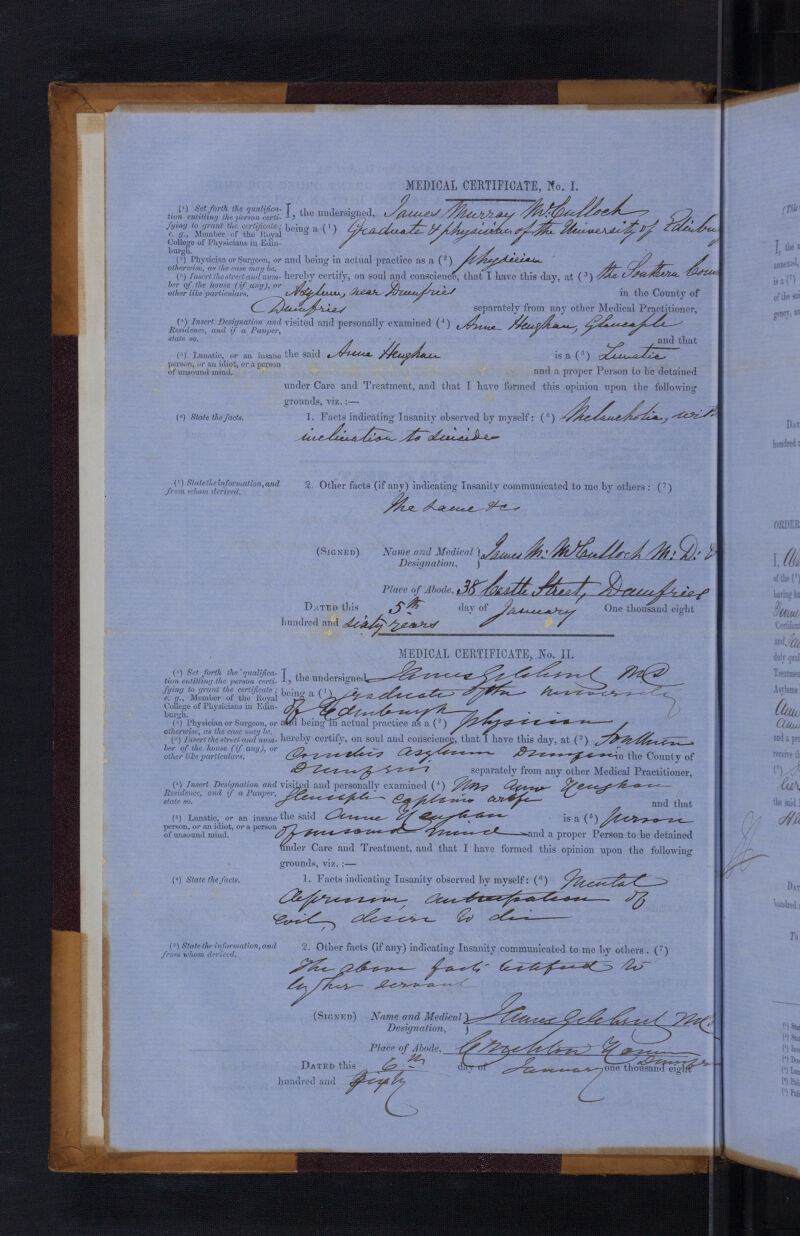 MEDICAL CERTIFICATE, No. I.
(¹) Set forth the qualifica-
tion entitling the person certi-
fying to grant the certificate;
e. g., Member of the Royal
College of Physicians in Edin-
burgh.
I, the undersigned, James Murray McCulloch
being a (¹) Graduate & physician of the University of Edinbu
(²) Physician or Surgeon, or
otherwise, as the case may be.
and being in actual practice as a (²) physician
(³) Insert the street and num-
ber of the house (if any), or
other like particulars.
hereby certify, on soul and conscience, that I have this day, at (³) the Southern Coun
Asylum, near Dumfries in the County of
Dumfries separately from any other Medical Practitioner,
(⁴) Insert Designation and
Residence, and if a Pauper,
state so.
visited and personally examined (⁴) Anne Heughan, Glencaple
and that
(⁵) Lunatic, or an insane
person, or an idiot, or a person
of unsound mind.
the said Anna Heughan is a (⁵) Lunatic
and a proper Person to be detained
under Care and Treatment, and that I have formed this opinion upon the following
grounds, viz. :—
(⁶) State the facts.
1. Facts indicating Insanity observed by myself: (⁶) Melancholia, with
inclination to suicide
(⁷) State the information, and
from whom derived.
2. Other facts (if any) indicating Insanity communicated to me by others: (⁷)
The same &c
(SIGNED) Name and Medical
Designation,
James M. McCulloch M. D.
Place of Abode, 38 Castle Street, Dumfries
DATED this 5th day of January One thousand eight
hundred and sixty years
MEDICAL CERTIFICATE, No. II.
(¹) Set forth the qualifica-
tion entitling the person certi-
fying to grant the certificate;
e. g., Member of the Royal
College of Physicians in Edin-
burgh.
I, the undersigned James Gilchrist MD
being a (¹) graduate of the university
of Edinburgh
(²) Physician or Surgeon, or
otherwise, as the case may be.
and being in actual practice as a (²) physician
(³) Insert the street and num-
ber of the house (if any), or
other like particulars.
hereby certify, on soul and conscience, that I have this day, at (³) Southern
Counties asylum Dumfries in the County of
Dumfries separately from any other Medical Practitioner,
(⁴) Insert Designation and
Residence, and if a Pauper,
state so.
visited and personally examined (⁴) Mrs Anne Heughan
Glencaple captains wife and that
(⁵) Lunatic, or an insane
person, or an idiot, or a person
of unsound mind.
the said Anne Heughan is a (⁵) person
of unsound mind and a proper Person to be detained
under Care and Treatment, and that I have formed this opinion upon the following
grounds, viz. :—
(⁶) State the facts.
1. Facts indicating Insanity observed by myself: (⁶) Mental
depression, anticipation of
evil, desire to die
(⁷) State the information, and
from whom derived.
2. Other facts (if any) indicating Insanity communicated to me by others. (⁷)
The above facts testified to
by her servant
(SIGNED) Name and Medical
Designation,
James Gilchrist MD
Place of Abode, Crichton House
Dumfries
DATED this 6th day of January one thousand eight
hundred and sixty